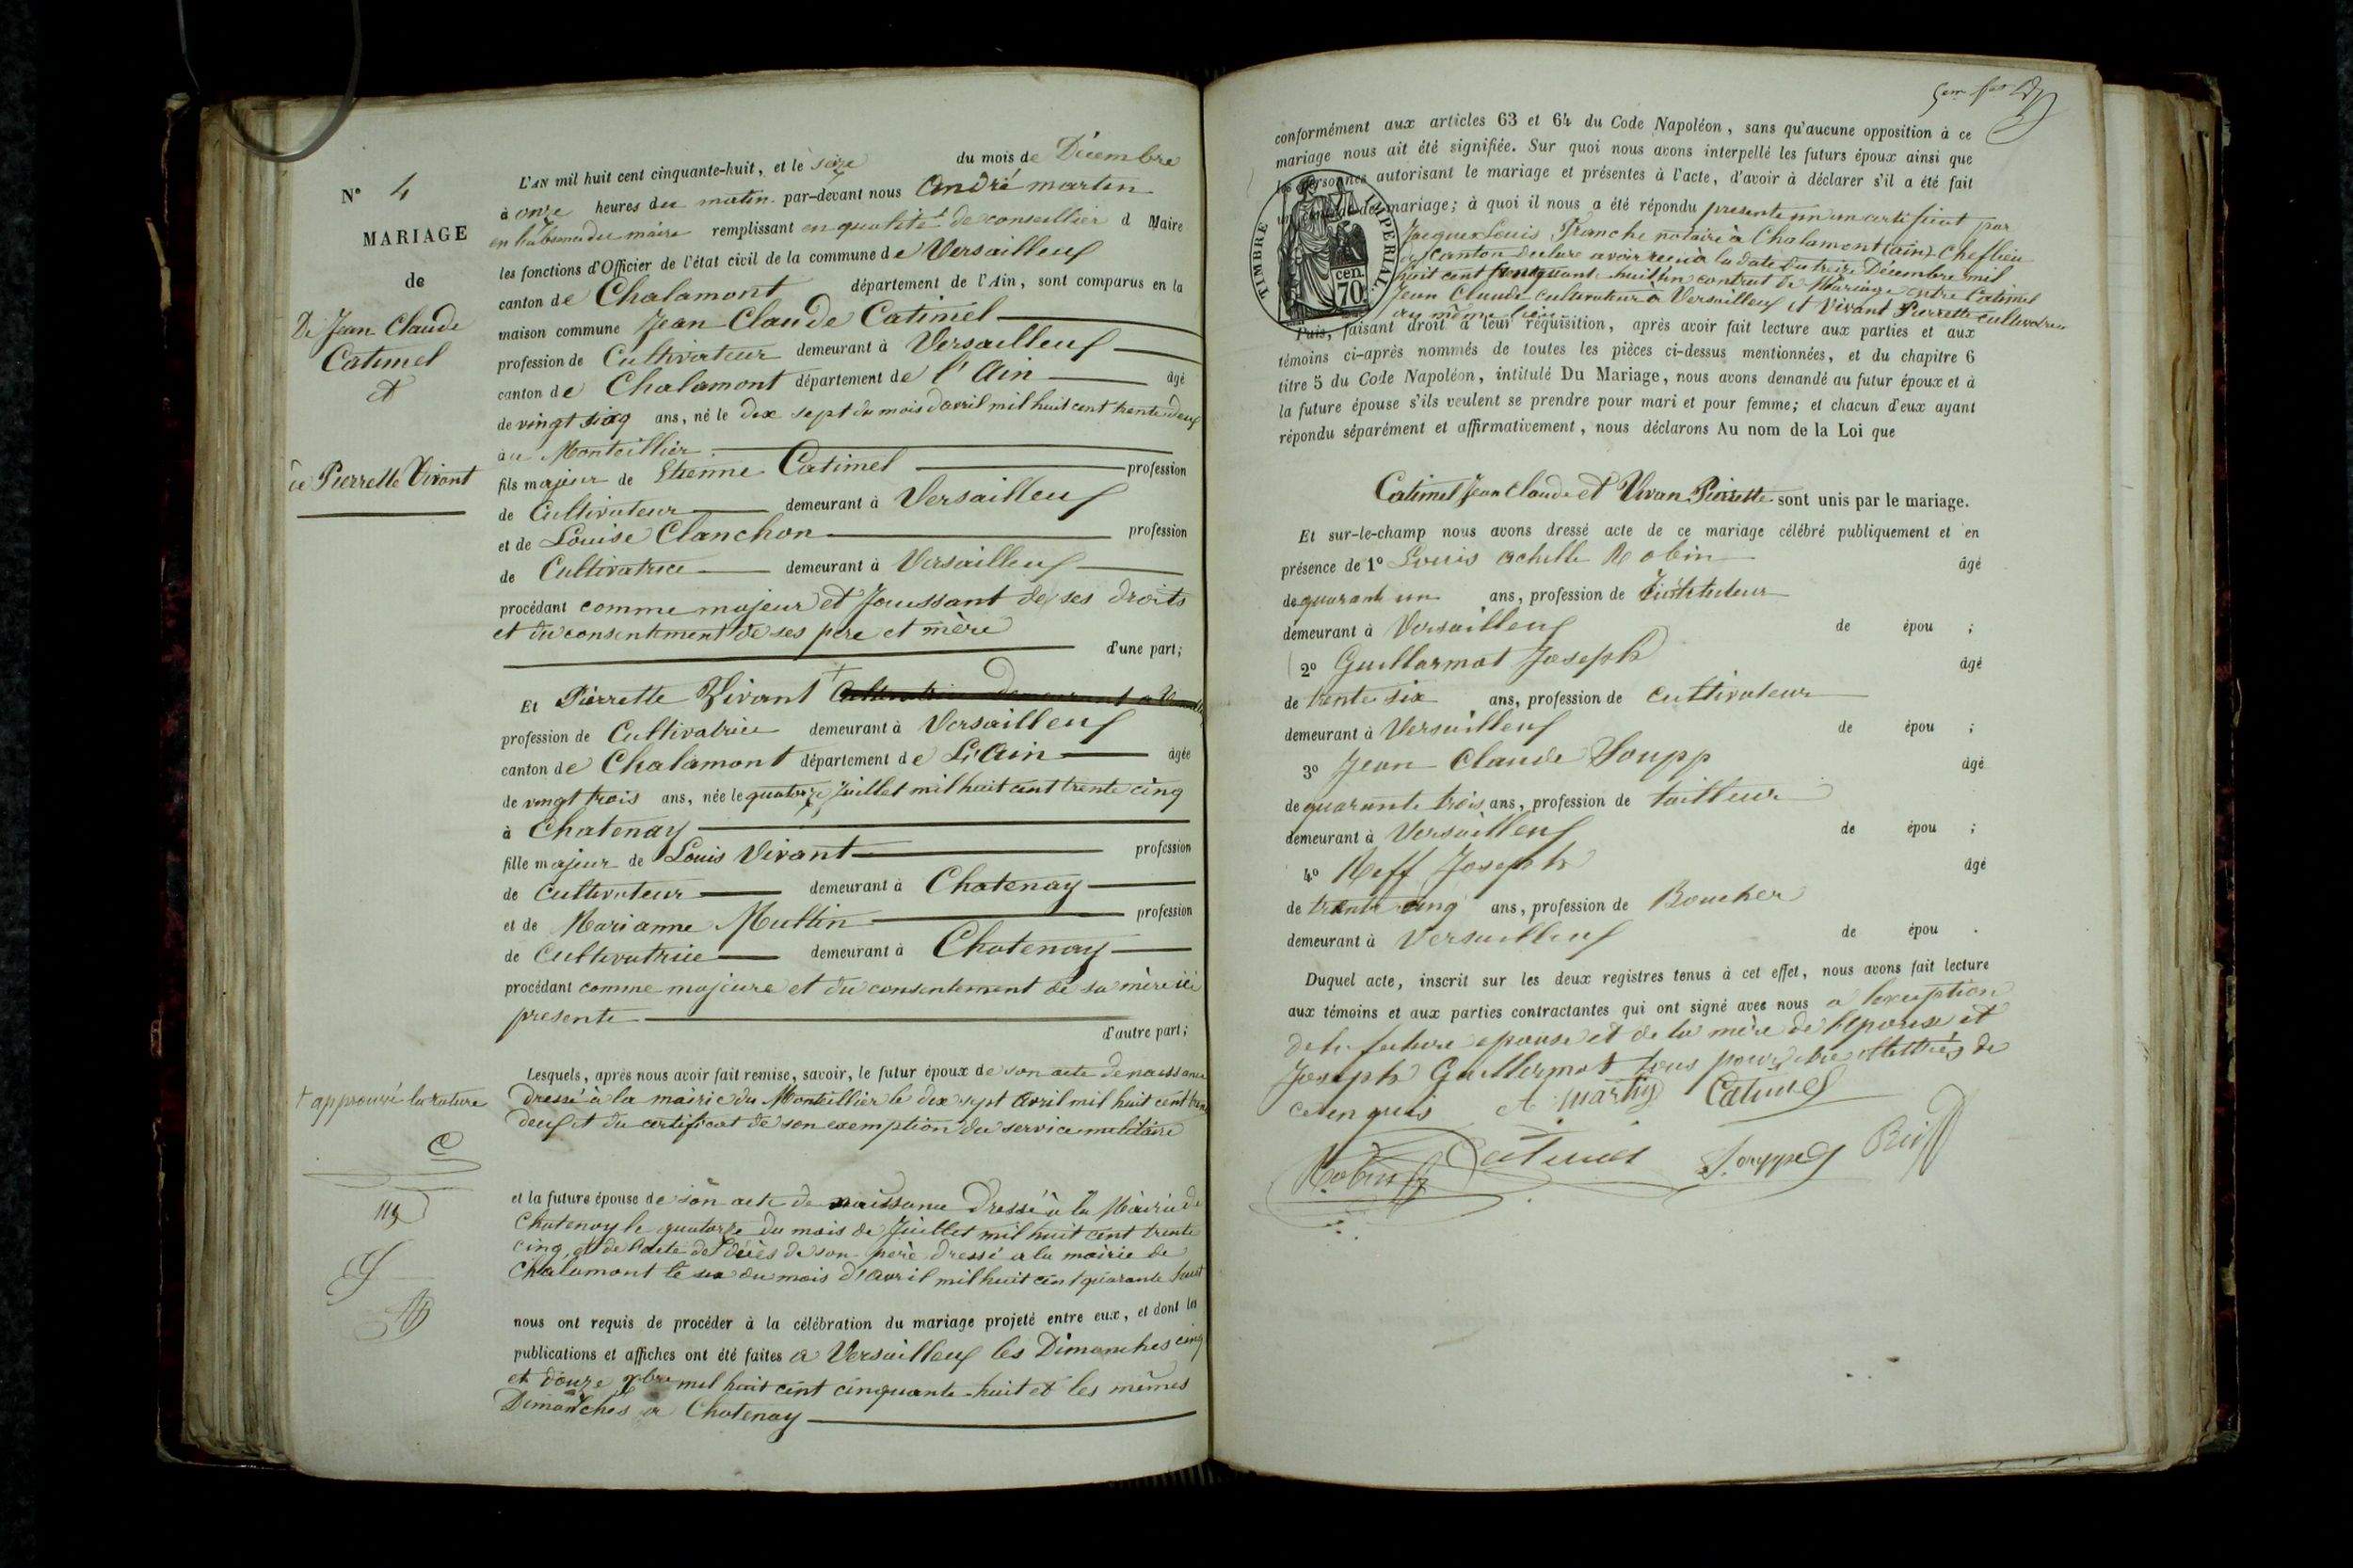 N° 4
MARIAGE
de
De Jean Claude
Catimel
et
de Pierrette Vivant
L'AN mil huit cent cinquante-huit, et le seize du mois de Décembre
à onze heures du matin par-devant nous André martin
en l'absence du maire remplissant en qualité de conseillier d Maire
les fonctions d'Officier de l'état civil de la commune de Versailleux
canton de Chalamont département de l'Ain, sont comparus en la
maison commune Jean Claude Catimel
profession de Cultivateur demeurant à Versailleux
canton de Chalamont département de l'Ain âgé
de vingt six ans, né le dix sept du mois d'avril mil huit cent trente deux
au Montellier
fils majeur de Etienne Catimel profession
de Cultivateur demeurant à Versailleux
et de Louise Clanchon profession
de Cultivatrice demeurant à Versailleux
procédant comme majeur et Jouissant de ses droits
et du consentement de ses pere et mère
d'une part;
Et Pierrette Vivant + Cultivatrice demeurant a
profession de Cultivatrice demeurant à Versailleux
canton de Chalamont département de L'Ain âgée
de vingt trois ans, née le quatorze Juillet mil huit cent trente cinq
à Chatenay
fille majeur de Louis Vivant profession
de Cultivateur demeurant à Chatenay
et de Marianne Muttin profession
de Cultivatrice demeurant à Chatenay
procédant comme majeure et du consentement de sa mère ici
presente
d'autre part;
Lesquels, après nous avoir fait remise, savoir, le futur époux de son acte de naissance
dressé à la mairie du Montellier le dix sept Avril mil huit cent trente
deux et du certificat de son exemption du service militaire
+ approuvé la rature
et la future épouse de son acte de naissance dressé à la Mairie de
Chatenay le quatorze du mois de Juillet mil huit cent trente
cinq, et de l'acte de décès de son père dressé a la mairie de
Chalamont le six du mois d'avril mil huit cent quarante
nous ont requis de procéder à la célébration du mariage projeté entre eux, et dont les
publications et affiches ont été faites a Versailleux les Dimanches cinq
et douze mil huit cent cinquante-huit et les mêmes
Dimanches a Chatenay
conformément aux articles 63 et 64 du Code Napoléon, sans qu'aucune opposition à ce
mariage nous ait été signifiée. Sur quoi nous avons interpellé les futurs époux ainsi que
les personnes autorisant le mariage et présentes à l'acte, d'avoir à déclarer s'il a été fait
un contrat de mariage; à quoi il nous a été répondu presente un certificat par
TIMBRE IMPERIAL
cen.
70
Jacques Louis Tranche notaire à Chalamont (ain) Chef lieu
de Canton declare avoir recu à la date du treize Décembre mil
huit cent cinquante huit un contrat de Mariage entre Catimel
Jean Claude cultivateur à Versailleux et Vivant Pierrette cultivatrice
au même lieu
Puis, faisant droit à leur réquisition, après avoir fait lecture aux parties et aux
témoins ci-après nommés de toutes les pièces ci-dessus mentionnées, et du chapitre 6
titre 5 du Code Napoléon, intitulé Du Mariage, nous avons demandé au futur époux et à
la future épouse s'ils veulent se prendre pour mari et pour femme; et chacun d'eux ayant
répondu séparément et affirmativement, nous déclarons Au nom de la Loi que
Catimel Jean Claude et Vivan Pierrette sont unis par le mariage.
Et sur-le-champ nous avons dressé acte de ce mariage célébré publiquement et en
présence de 1° Louis achille Robin âgé
de quarante un ans, profession de Instituteur
demeurant à Versailleux de épou ;
2° Guillarmot Joseph âgé
de trente six ans, profession de Cultivateur
demeurant à Versailleux de épou ;
3° Jean Claude Soupp âgé
de quarante trois ans, profession de tailleur
demeurant à Versailleux de épou ;
4° Reff Joseph âgé
de trente cinq ans, profession de Boucher
demeurant à Versailleux de épou .
Duquel acte, inscrit sur les deux registres tenus à cet effet, nous avons fait lecture
aux témoins et aux parties contractantes qui ont signé avec nous a l'exception
de la future epouse et de la mère de l'épouse et
Joseph Guillermot tous pour être illettrés de
ce enquis A martin Catimel
Robin Catimel Souppe Reiff